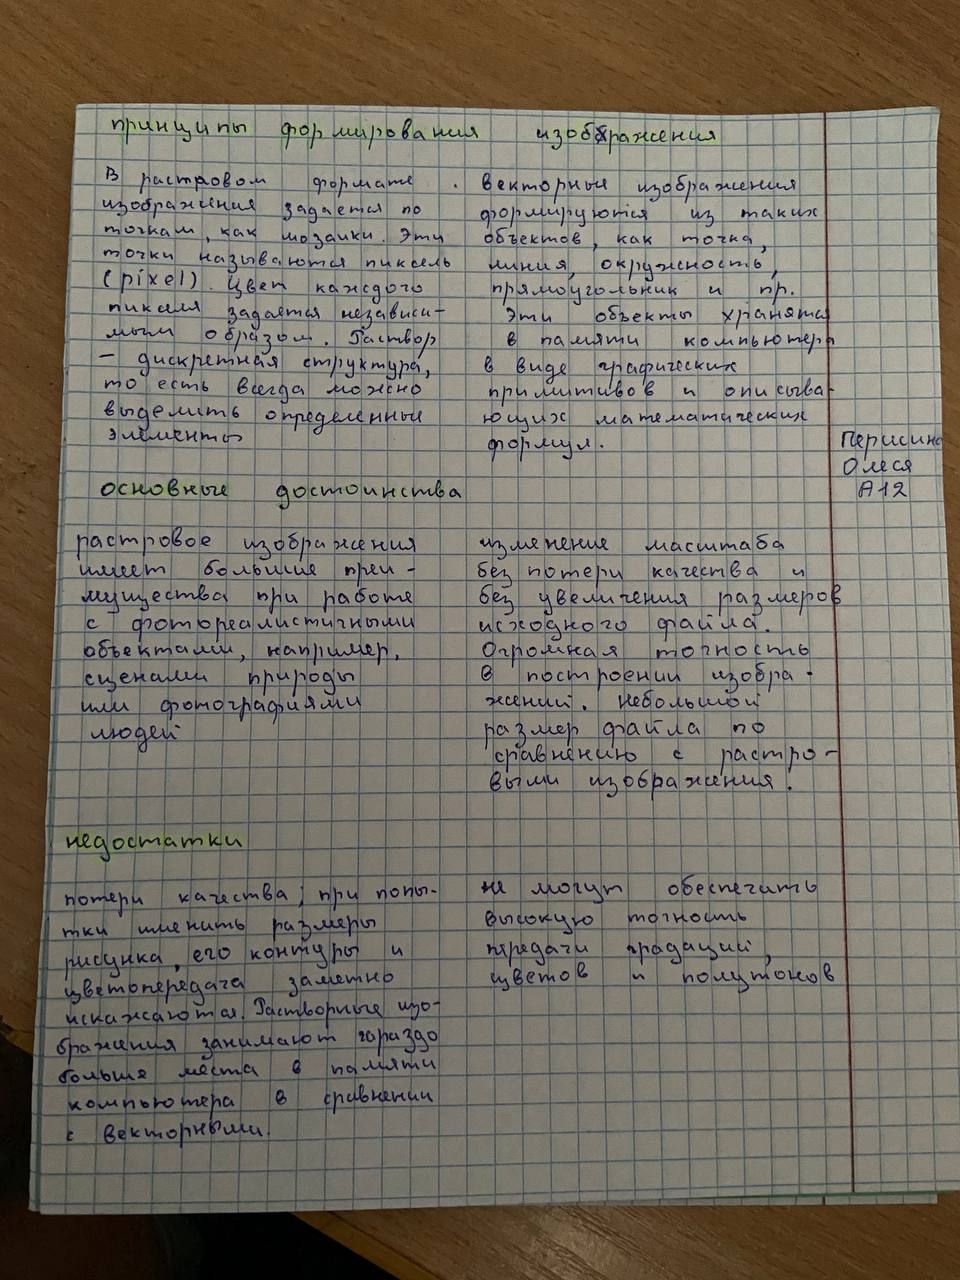 принципы формирования изображения
В растровом формате
изображения задается по
точкам, как мозаики. Эти
точки называются пиксель
(pixel). Цвет каждого
пикселя задается независи-
мым образом. Раствор
- дискретная структура,
то есть всегда можно
выделить определенные
элементы
векторные изображения
формируются из таких
объектов, как точка,
линия, окружность,
прямоугольник и пр.
Эти объекты хранятся
в памяти компьютера
в виде графических
примитивов и описыва-
ющих математических
формул.
Олеся
А12
основные достоинства
растровое изображения
имеет большие преи-
мущества при работе
с фотореалистичными
объектами, например,
сценами природы
или фотографиями
людей
изменение масштаба
без потери качества и
без увеличения размеров
исходного файла.
Огромная точность
в построении изобра-
жений. Небольшой
размер файла по
сравнению с растро-
выми изображения.
недостатки
потери качества; при попы-
тки именить размеры
рисунка, его контуры и
цветопередача заметно
искажаются. Растворные изо-
бражения занимают гараздо
больше места в памяти
компьютера в сравнении
с векторными.
не могут обеспечить
высокую точность
передачи градаций,
цветов и полутонов